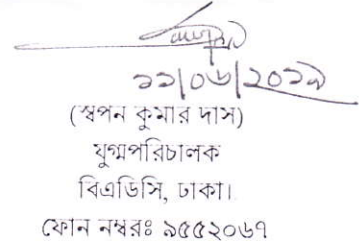 ১১/০৬/২০১৯
(স্বপন কুমার দাস)
যুগ্মপরিচালক
বিএডিসি, ঢাকা।
ফোন নম্বরঃ ৯৫৫২০৬৭